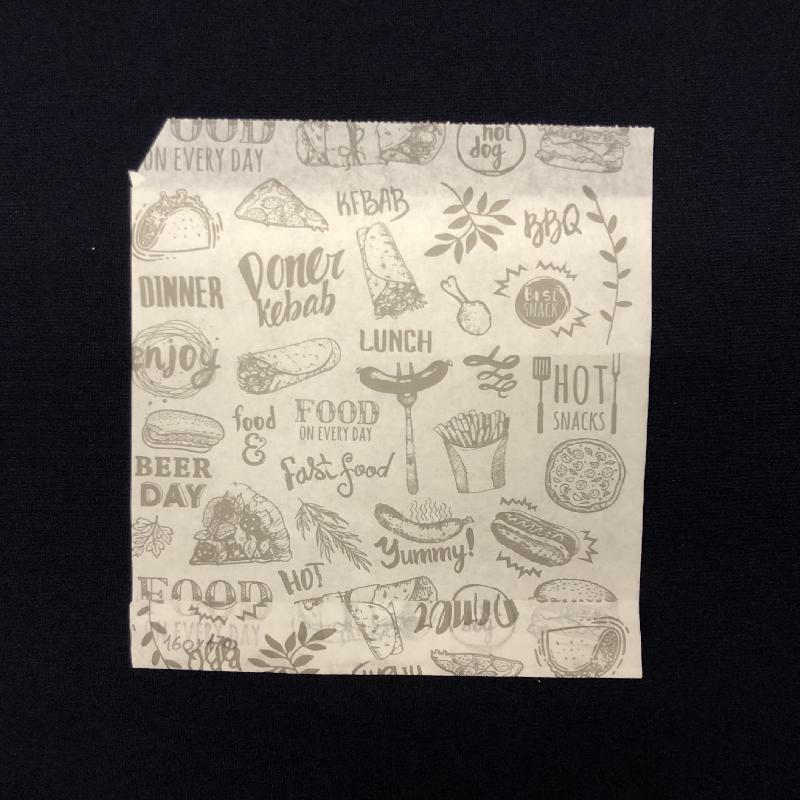 FOOD
ON EVERY DAY
hot
dog
KEBAB
BBQ
Doner
kebab
DINNER
best
SNACK
LUNCH
enjoy
HOT
SNACKS
food
&
FOOD
ON EVERY DAY
BEER
DAY
Fast food
Yummy!
HOT
FOOD
ON EVERY DAY